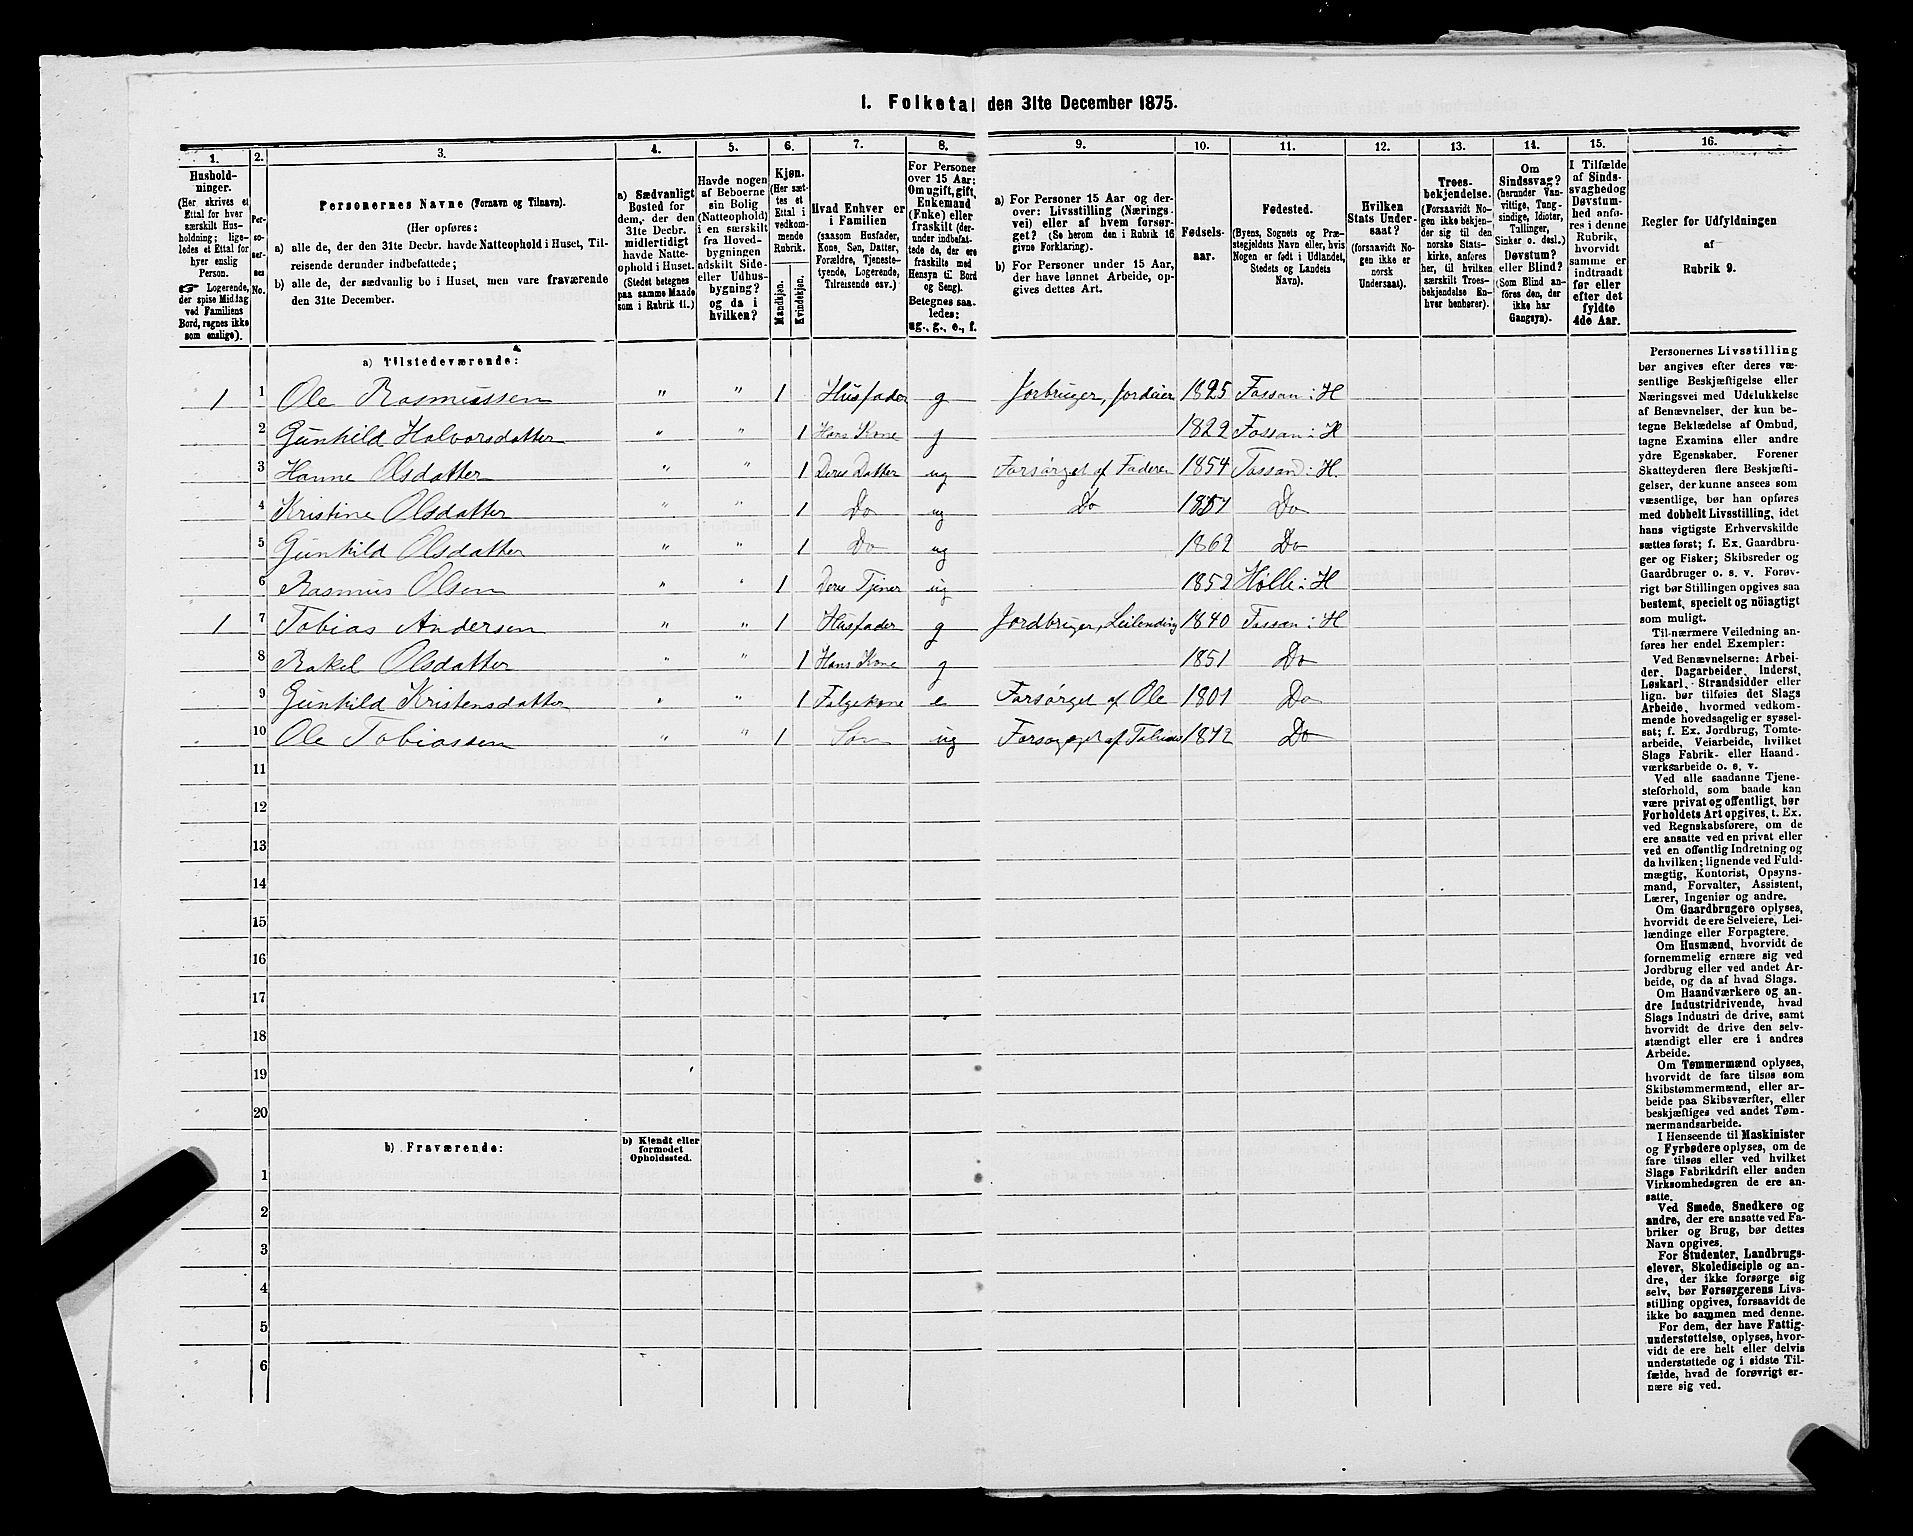 1. Folketal den 31te December 1875.
1. 2. 3. 4. 5. 6. 7. 8. 9. 10. 11. 12. 13. 14. 15. 16.
Husholdninger.
(Her skrives et
Ettal for hver
særskilt Hus-
holdning; lige-
ledes et Ettal for
hver enslig
Person.
☞ Logerende,
der spise Middag
ved Familiens
Bord, regnes ikke
som enslige).
Per-
so-
ner-
nes
No.
Personernes Navne (Fornavn og Tilnavn).
(Her opføres:
a) alle de, der den 31te Decbr. havde Natteophold i Huset, Til-
reisende derunder indbefattede;
b) alle de, der sædvanlig bo i Huset, men vare fraværende
den 31te December.
a) Sædvanligt
Bosted for
dem, der den
31te Decbr.
midlertidigt
havde Natte-
ophold i Huset.
(Stedet betegnes
paa samme Maade
som i Rubrik 11.)
Havde nogen
af Beboerne
sin Bolig
(Natteophold)
i en særskilt
fra Hoved-
bygningen
adskilt Side-
eller Udhus-
bygning?
og da i
hvilken?
Kjøn.
(Her sæt-
tes et
Ettal i
vedkom-
mende
Rubrik.
Mandkjøn.
Kvindekjøn.
Hvad Enhver er
i Familien
(saasom Husfader,
Kone, Søn, Datter,
Forældre, Tjeneste-
tyende, Logerende,
Tilreisende osv.)
For Personer
over 15 Aar:
Om ugift, gift,
Enkemand
(Enke) eller
fraskilt (der-
under indbefat-
tede de, der ere
fraskilte med
Hensyn til Bord
og Seng).
Betegnes saa-
ledes:
ug., g., e., f.
a) For Personer 15 Aar og der-
over: Livsstilling (Nærings-
vei) eller af hvem forsør-
get? (Se herom den i Rubrik 16
givne Forklaring).
b) For Personer under 15 Aar,
der have lønnet Arbeide, op-
gives dettes Art.
Fødsels-
aar.
Fødested.
(Byens, Sognets og Præ-
stegjeldets Navn eller, hvis
Nogen er født i Udlandet,
Stedets og Landets
Navn).
Hvilken
Stats Under-
saat?
(forsaavidt No-
gen ikke er
norsk
Undersaat).
Troes-
bekjendelse.
(Forsaavidt No-
gen ikke bekjen-
der sig til den
norske Stats-
kirke, anføres
her, til hvilken
særskilt Troes-
bekjendelse En-
hver henhører).
Om
Sindssvag?
(herunder Van-
vittige, Tung-
sindige, Idioter,
Tullinger,
Sinker o. desl.)
Døvstum?
eller Blind?
(Som Blind an-
føres den, der
ikke har
Gangsyn).
I Tilfælde
af Sinds-
svaghed og
Døvstum-
hed anfø-
res i denne
Rubrik,
hvorvidt
samme er
indtraadt
før eller
efter det
fyldte
4de Aar.
Regler for Udfyldningen
af
Rubrik 9.
a) Tilstedeværende:
1 1 Ole Rasmussen " " 1 Husfader g Jorbruger, Jordeier 1825 Fossan i H
2 Gunhild Halvorsdatter " " 1 Hans Kone g 1822 Fossan i H
3 Hanne Olsdatter " " 1 Deres Datter ug Forsørget af Faderen 1854 Fossan i H.
4 Kristine Olsdatter " " 1 Do ug Do 1857 Do
5 Gunhild Olsdatter " " 1 Do ug 1862 Do
6 Rasmus Olsen " " 1 Deres Tjener ug 1852 Hølle i H
1 7 Tobias Andersen " " 1 Husfader g Jordbruger, Leilending 1840 Fossan i H
8 Rakel Olsdatter " " 1 Hans Kone g 1851 Do
9 Gunhild Kristensdatter " " 1 Folgekone e Forsørget af Ole 1801 Do
10 Ole Tobiassen " " 1 Søn ug Forsørget af Tobias 1872 Do
11
12
13
14
15
16
17
18
19
20
b) Fraværende:
b) Kjendt eller
formodet
Opholdssted.
1
2
3
4
5
6
Personernes Livsstilling
bør angives efter deres væ-
sentlige Beskjæftigelse eller
Næringsvei med Udelukkelse
af Benævnelser, der kun be-
tegne Beklædelse af Ombud,
tagne Examina eller andre
ydre Egenskaber. Forener
Skatteyderen flere Beskjæfti-
gelser, der kunne ansees som
væsentlige, bør han opføres
med dobbelt Livsstilling, idet
hans vigtigste Erhvervskilde
sættes først; f. Ex. Gaardbru-
ger og Fisker; Skibsreder og
Gaardbruger o. s. v. Forøv-
rigt bør Stillingen opgives saa
bestemt, specielt og nöiagtigt
som muligt.
Til nærmere Veiledning an-
føres her endel Exempler:
Ved Benævnelserne: Arbei-
der, Dagarbeider, Inderst,
Løskarl, Strandsidder eller
lign. bør tilføies det Slags
Arbeide, hvormed vedkom-
mende hovedsagelig er syssel-
sat; f. Ex. Jordbrug, Tomte-
arbeide, Veiarbeide, hvilket
Slags Fabrik- eller Haand-
værksarbeide o. s. v.
Ved alle saadanne Tjene-
steforhold, som baade kan
være privat og offentligt, bør
Forholdets Art opgives, t. Ex.
ved Regnskabsførere, om de
ere ansatte ved en privat eller
ved en offentlig Indretning og
da hvilken; lignende ved Fuld-
mægtig, Kontorist, Opsyns-
mand, Forvalter, Assistent,
Lærer, Ingeniør og andre.
Om Gaardbrugere oplyses,
hvorvidt de ere Selveiere, Lei-
lændinge eller Forpagtere.
Om Husmænd, hvorvidt de
fornemmelig ernære sig ved
Jordbrug eller ved andet Ar-
beide, og da af hvad Slags.
Om Haandværkere og an-
dre Industridrivende, hvad
Slags Industri de drive, samt
hvorvidt de drive den selv-
stændigt eller ere i andres
Arbeide.
Om Tømmermænd oplyses,
hvorvidt de fare tilsøs som
Skibstømmermænd, eller ar-
beide paa Skibsværfter, eller
beskjæftiges ved andet Tøm-
mermandsarbeide.
I Henseende til Maskinister
og Fyrbødere oplyses, om de
fare tilsøs eller ved hvilket
Slags Fabrikdrift eller anden
Virksomhedsgren de ere an-
satte.
Ved Smede, Snedkere og
andre, der ere ansatte ved Fa-
briker og Brug, bør dettes
Navn opgives.
For Studenter, Landbrugs-
elever, Skoledisciple og an-
dre, der ikke forsørge sig
selv, bør Forsørgerens Livs-
stilling opgives, forsaavidt de
ikke bo sammen med denne.
For dem, der have Fattig-
understøttelse, oplyses, hvor-
vidt de ere helt eller delvis
understøttede og i sidste Til-
fælde, hvad de forøvrigt er-
nære sig ved.